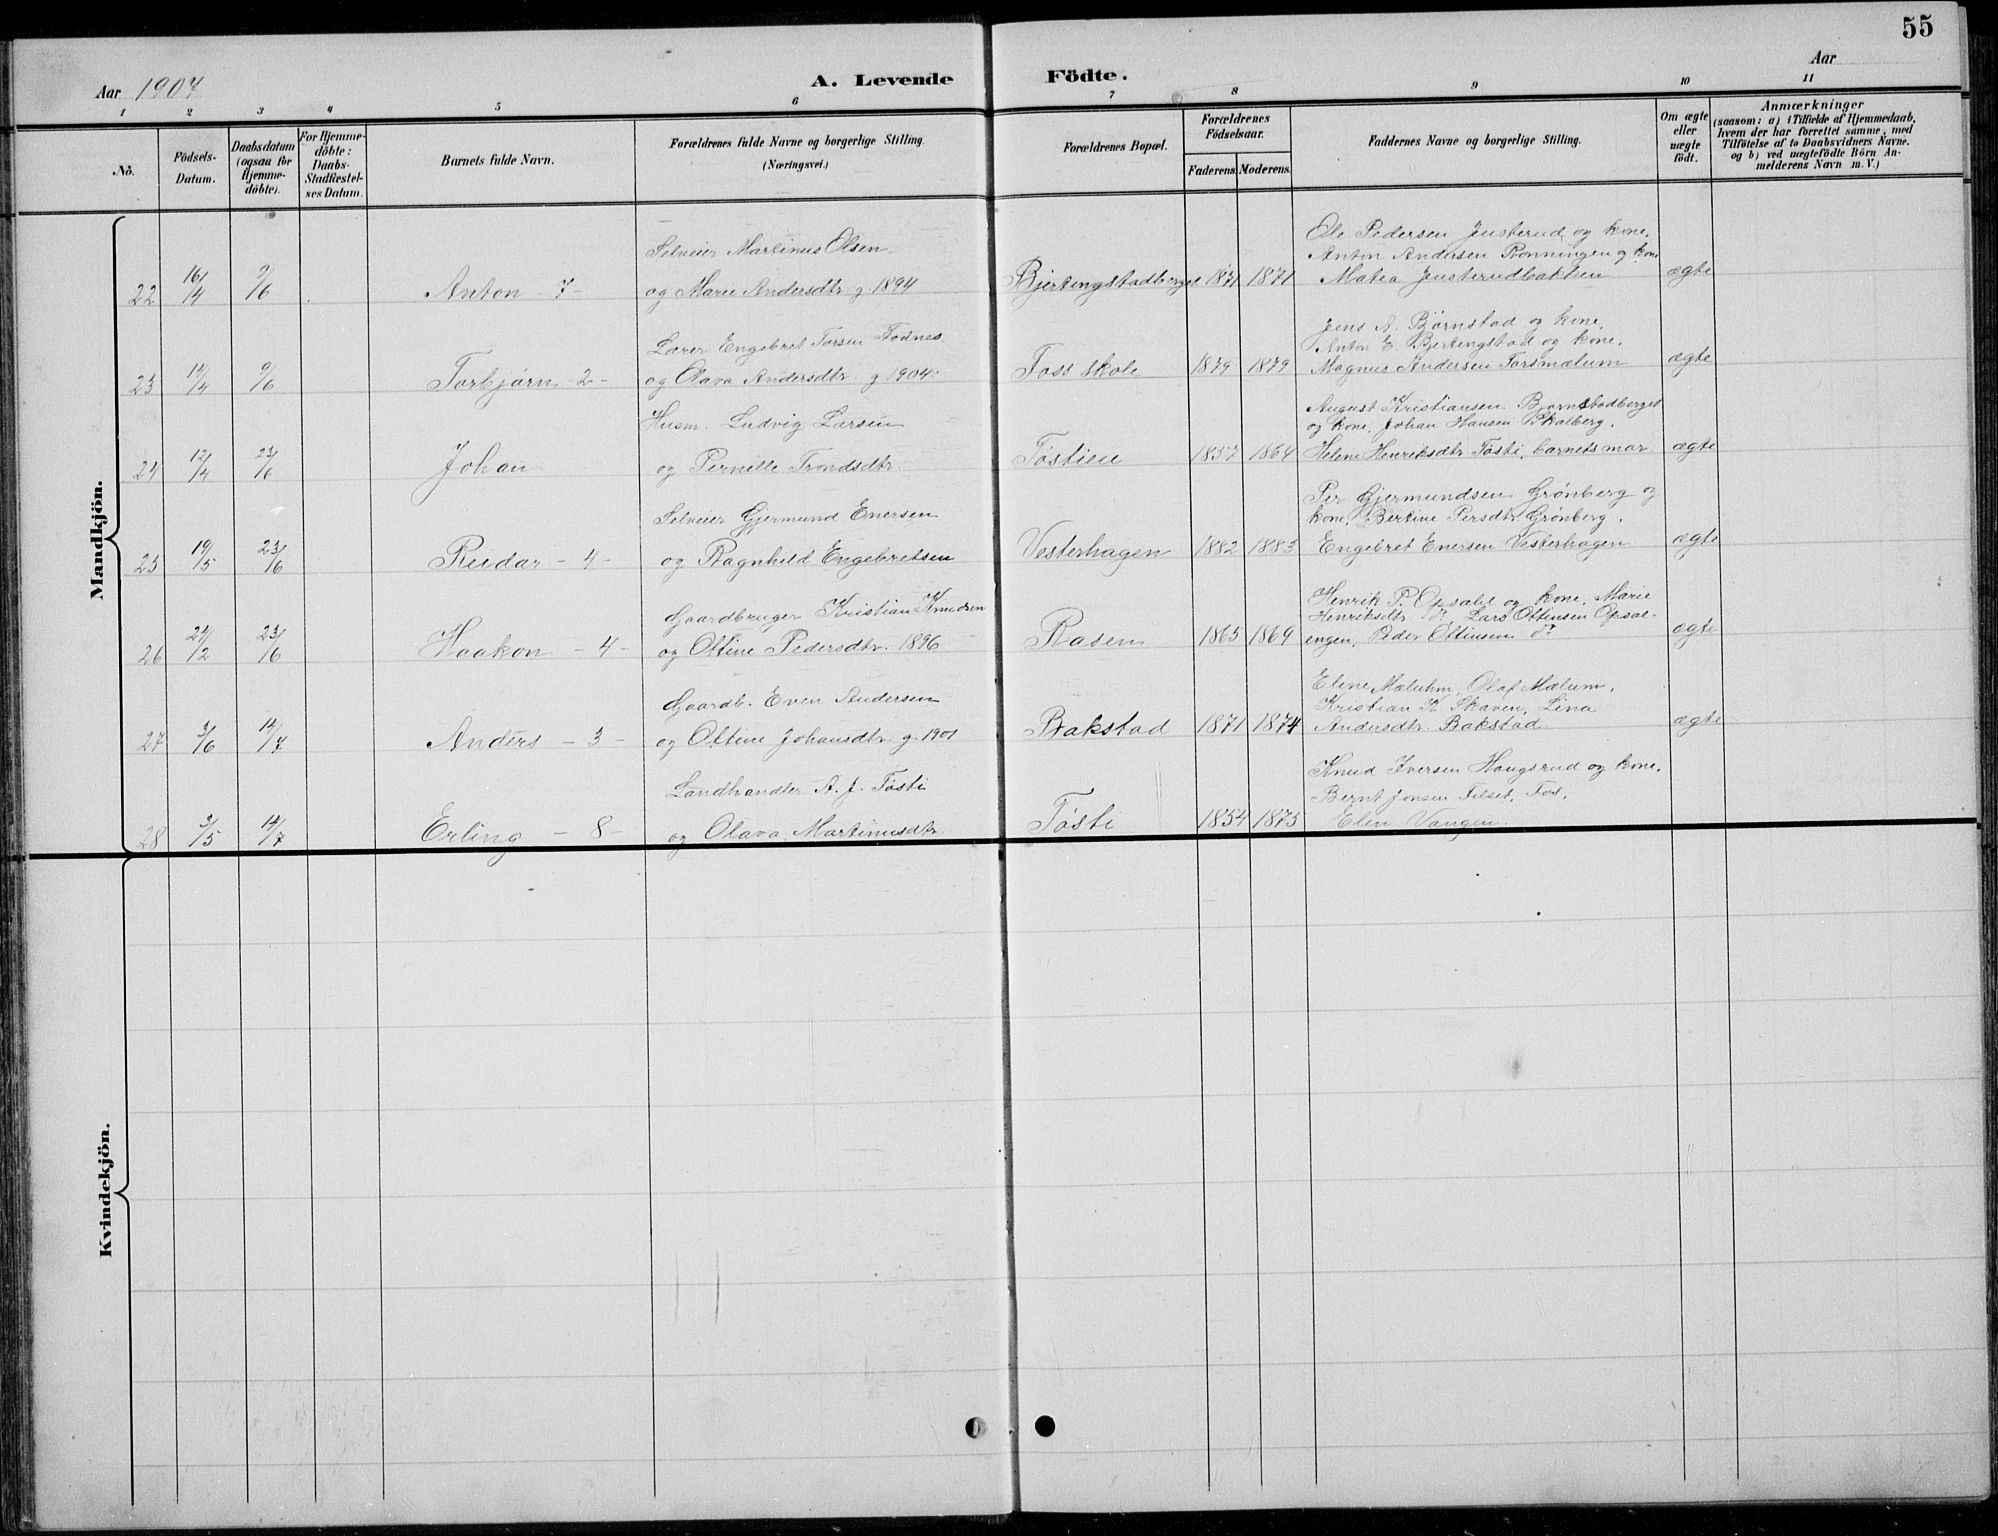 55
Aar 1907
A. Levende Födte.
Aar
1 2 3 4 5 6 7 8 9 10 11
No.
Födsels-Datum.
Daabsdatum (ogsaa för Hjemme-döbte).
For Hjemme-döbte: Daabs-Stadfæstel-ses Datum.
Barnets fulde Navn.
Forældrenes fulde Navne og borgerlige Stilling.
(Næringsvei.)
Forældrenes Bopæl.
Forældrenes Födselsaar.
Faderens. Moderens.
Faddernes Navne og borgerlige Stilling.
Om ægte eller uægte födt.
Anmærkninger
(saasom: a) i Tilfælde af Hjemmedaab,
hvem der har forrettet samme, med
Tilföielse af to Daabsvidners Navne,
og b) ved uægtefödte Börn An-
melderens Navn m. V.)
Mandkjön.
Selveier Martinus Olsen
Ole Pedersen Jensterud og kone,
Anton Andersen Rønningen og kone
22 16/4 9/6 Anton - 7 - og Marie Andersdtr. g. 1894 Bjertingstadberget 1871 1871 Matea Jensterudbakken ægte
Lærer Engebret Torsen Fodnes
Jens A. Bjørnstad og kone,
Anton E. Bjertingstad og kone,
23 14/4 9/6 Torbjørn - 2 - og Olava Andersdtr. g 1904 Foss skole 1879 1879 Magnus Andersen Torsmælum ægte
Husm. Ludvig Larsen
August Kristiansen Bjørnstadberget
og kone, Johan Hansen Skalberg,
24 12/4 23/6 Johan og Pernille Trondsdtr. Tøstien 1857 1864 Helene Henriksdtr Tøsti, barnets mor ægte
Selveier Gjermund Enersen
Per Gjermundsen Grønberg og
kone, Bertine Persdtr. Grønberg,
25 19/5 23/6 Reidar - 4 - og Ragnhild Engebretsen Vesterhagen 1882 1883 Engebret Enersen Vesterhagen ægte
Gaardbruger Kristian Knudsen
Henrik P. Opsahl og kone, Marie
Henriksdtr. Lars Ottinsen Opsal-
26 24/2 23/6 Haakon - 4 - og Ottine Pedersdtr. 1896 Rasen 1865 1869 engen, Peder Ottinsen do ægte
Gaardb. Even Andersen
Elene Mæluhm, Olaf Mælum,
Kristian K. Skaven, Lina
27 3/6 14/7 Anders - 3 - og Ottine Johansdtr. g. 1901 Bakstad 1871 1874 Andersdtr. Bakstad ægte
Landhandler A. J. Tøsti
Knud Iversen Haugsrud og kone,
Bernt Jonsen Filset,
28 3/5 14/7 Erling - 8 - og Olava Martinusdtr Tøsti 1854 1873 Elen Vangen.
Kvindekjön.